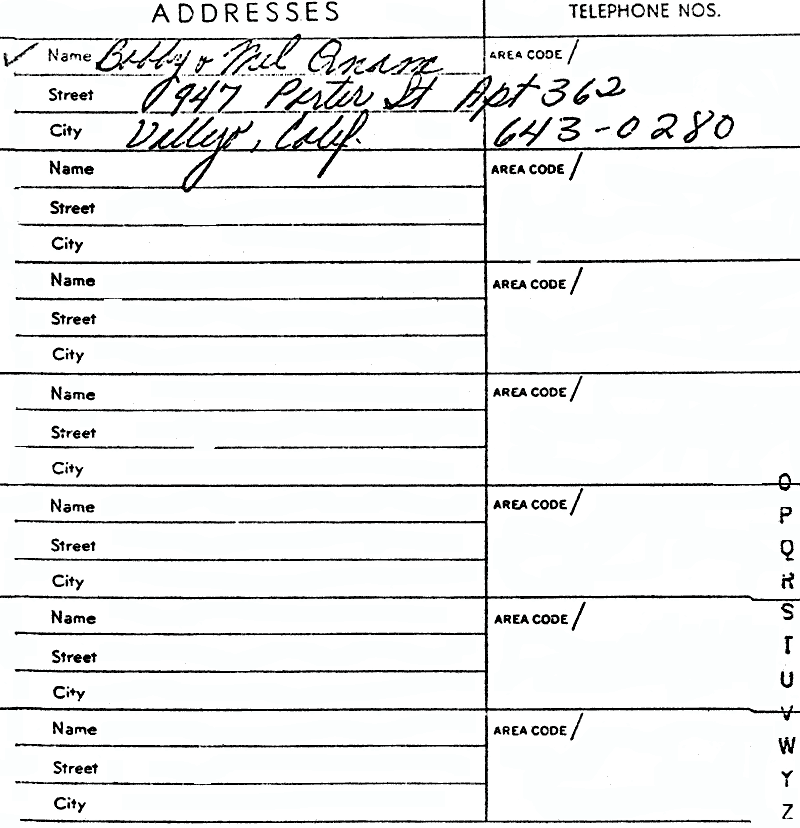 ADDRESSES TELEPHONE NOS.
✓ Name Bobby & Mel AREA CODE /
Street 947 Porter St Apt 362
City Vallejo, Calif. 643-0280
Name AREA CODE /
Street
City
Name AREA CODE /
Street
City
Name AREA CODE /
Street
City
Name AREA CODE /
Street
City
Name AREA CODE /
Street
City
Name AREA CODE /
Street
City
O
P
Q
R
S
T
U
V
W
Y
Z